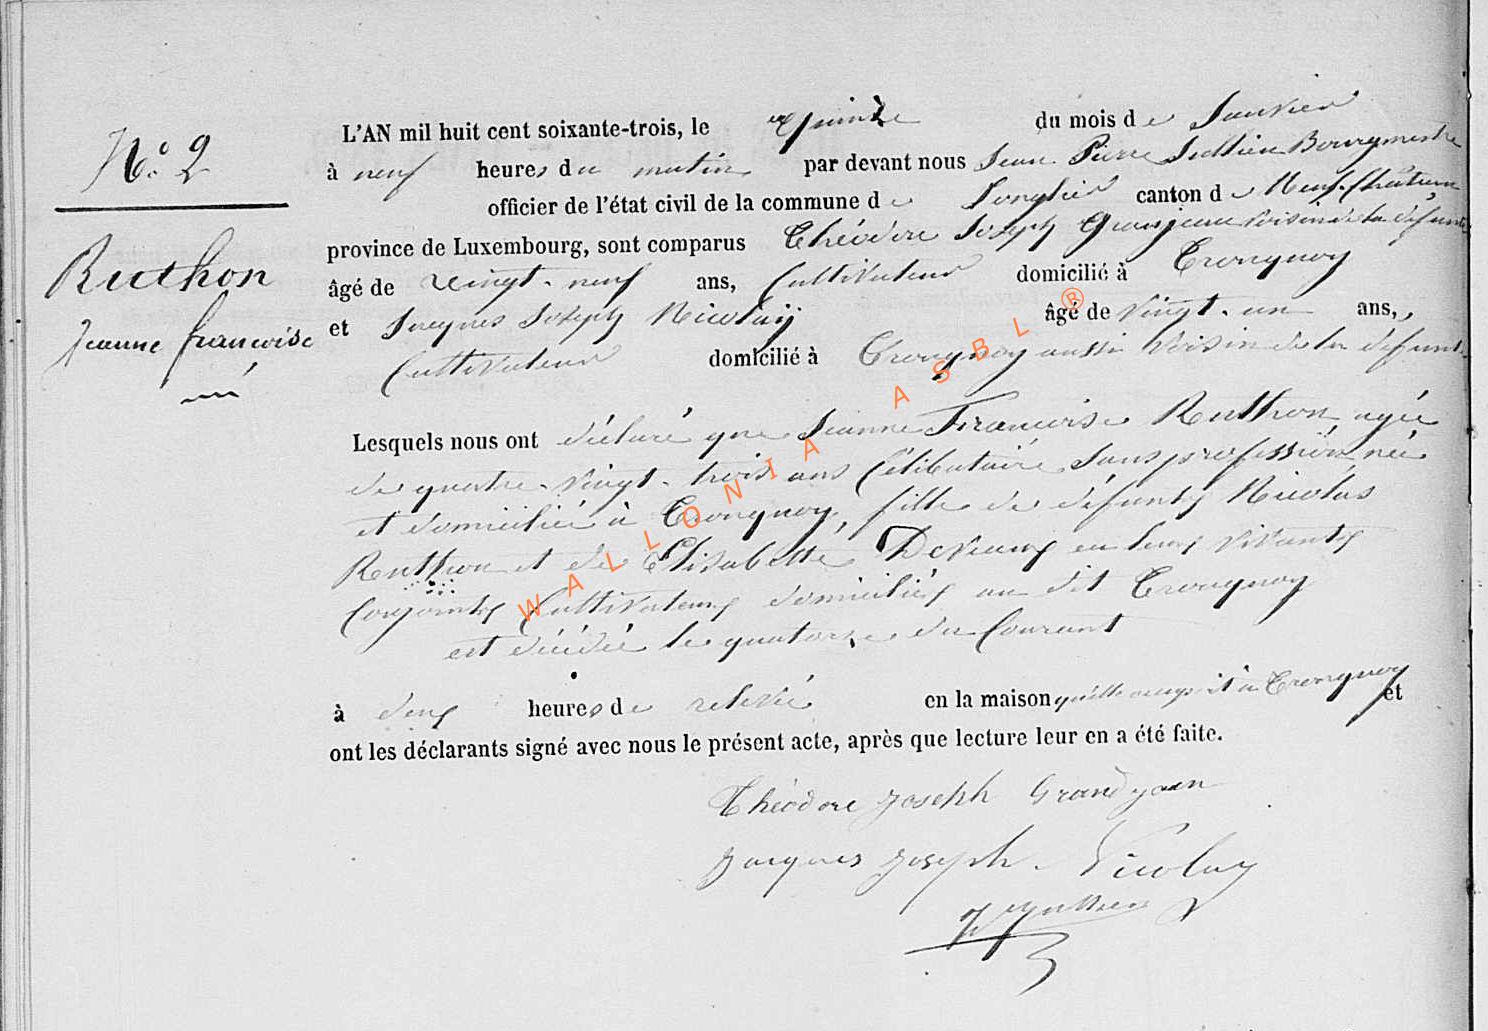 N.º 2
Ruthon
Jeanne françoise
L'AN mil huit cent soixante-trois, le quinze du mois de Janvier
à neuf heures du matin par devant nous Jean Pierre Bourgmestre
officier de l'état civil de la commune de Longlier canton de Neufchâteau
province de Luxembourg, sont comparus Théodore Joseph Grandjean voisin de la défunte
âgé de vingt-neuf ans, Cultivateur domicilié à Tronquoy
et Jacques Joseph Nicolay âgé de vingt-un ans,
Cultivateur domicilié à Tronquoy aussi voisin de la défunte
Lesquels nous ont déclaré que Jeanne Françoise Ruthon, agée
de quatre-vingt-trois ans Célibataire, Sans profession, née
et domiciliée à Tronquoy, fille de défunts Nicolas
Ruthon et de Elisabethe Devaux en leurs vivants
Conjoints Cultivateurs domiciliés au dit Tronquoy
est décédée le quatorze du Courant
à deux heures de relevée en la maison qu'elle occupait à Tronquoy et
ont les déclarants signé avec nous le présent acte, après que lecture leur en a été faite.
Théodore Joseph Grandjean
Jacques Joseph Nicolay
WALLONIA ASBL ®